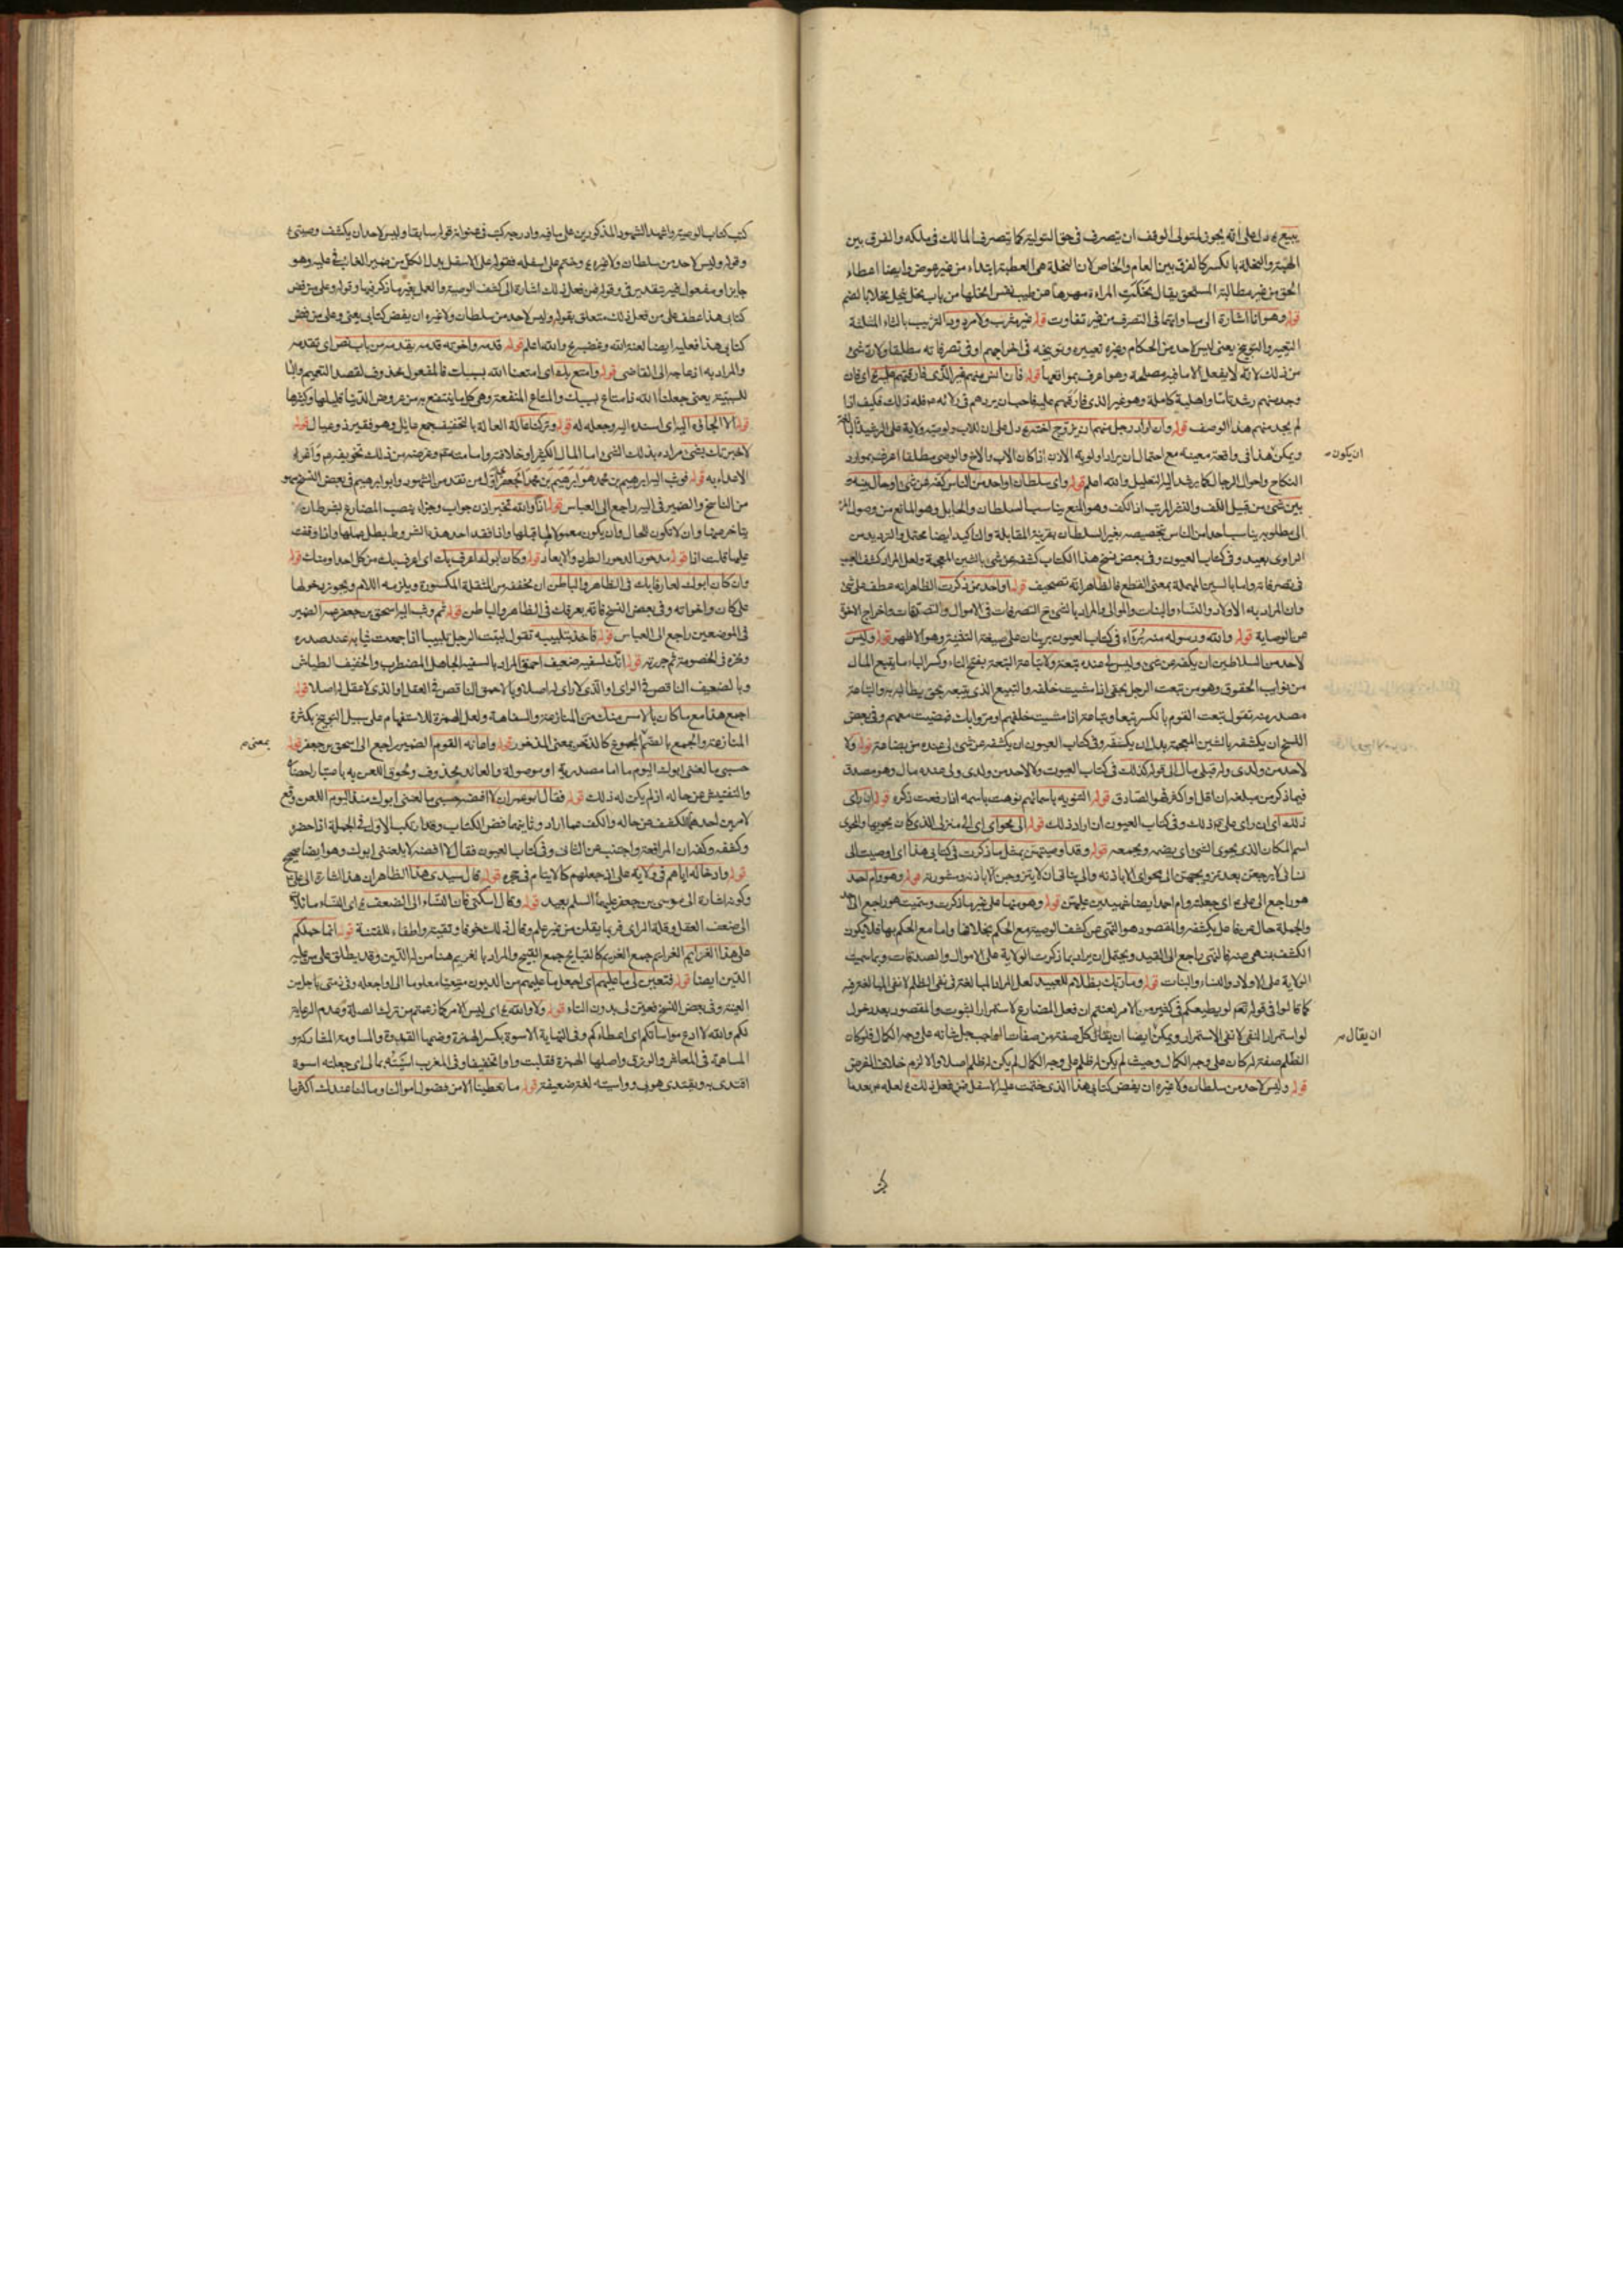 يبيع ع دل على انه يجوز لمتولى الوقف ان يتصرف فى حق التولية كما يتصرف المالك فى ملكه والفرق بين
الهبة والنحلة بالكسر كالفرق بين العام والخاص لان النحلة هى العطية ابتداء من غير عوض وايضا اعطاء
الحق من غير مطالبة المستحق يقال نحلت المراة مهرها عن طيب نفس انحلها من باب نحل ينحل نحلا بالضم
قوله وهو انا اشارة الى مساواتهما فى التصرف من غير تفاوت قوله غير مثرب ولا مردود التثريب بالثاء المثلثة
التعيير والتوبيخ يعنى ليس لاحد من الحكام وغيره تعييره وتوبيخه فى اخراجهم او فى تصرفاته مطلقا ولا رد شئ
من ذلك لانه لا يفعل الا ما فيه مصلحة وهو اعرف بمواقعها قوله فان انس منهم غير الذى فارقتهم عليه اى فان
وجد منهم رشدا تاما واهلية كاملة وهو غير الذى فارقهم عليه فاحب ان يردهم فى ولاية صرفله ذلك فكيف اذا
لم يجد منهم هذا الوصف قوله وان اراد رجل منهم ان يزوج اخته ع دل على ان للاب ولوصيه ولاية على الرشيدة
ويمكن هذا فى واقعة معينة مع احتمال ان يراد اولوية الاذن اذا كان الاب والاخ والوصى مطلقا اعرف بموارد
ان يكون
النكاح واحوال الرجال كما يرشد اليه التعليل والله اعلم قوله واى سلطان او احد من الناس كفه عن شئ او حال بينه
بين شئ من قبيل اللف والنشر المرتب اذ الكف وهو المنع يناسب السلطان والحايل وهو المانع من وصول
الى مطلوبه يناسب احد من الناس بتخصيصه بغير السلطان بقرينة المقابلة والتاكيد ايضا محتمل والترديد من
الراوى بعيد وفى كتاب العيون وفى بعض نسخ هذا الكتاب كشفه عن شئ بالشين المعجمة ولعل المراد كشف
فى تصرفاته واما بالسين المهملة بمعنى القطع فالظاهر انه تصحيف قوله او احد من ذكرت الظاهر انه عطف على شئ
وان المراد به الاولاد والنساء والبنات والموالى والمراد بالشئ التصرفات فى الاموال والتصدقات واخراج الاخوة
عن الوصاية قوله والله ورسوله منه براء فى كتاب العيون بريئان على صيغة التثنية وهو الاظهر قوله وليس
لاحد من السلاطين ان يكفه عن شئ وليس لى عنده تبعة ولا تباعة التبعة بفتح التاء وكسر الباء ما يتبع المال
من نوايب الحقوق وهو من تبعت الرجل بحقى اذا مشيت خلفه والتبيع الذى يتبعه بحق يطالبه به والتباعة
مصدر منه تقول تبعت القوم بالكسر تبعا وتباعة اذا مشيت خلفهم او مروا بك فمضيت معهم وفى بعض
النسخ ان يكشفه بالشين المعجمة بدل ان يكفه وفى كتاب العيون ان يكشفه عن شئ لى عنده من بضاعة قوله ولا
لاحد من ولدى وله قبلى مال الى قوله كذلك فى كتاب العيون ولا لاحد من ولدى ولى عنده مال وهو مصدق
فيما ذكر من مبلغه ان اقل او اكثر فهو الصادق قوله التنويه باسمائهم نوهت باسمه اذا رفعت ذكره قوله ان راى
ذلك اى ان راى على ع ذلك وفى كتاب العيون ان اراد ذلك قوله الى محواى اى الى منزلى الذى كان يحويها والمحوى
اسم المكان الذى يحوى الشئ اى يضمه ويجمعه قوله وقد اوصيتهن بمثل ما ذكرت فى كتابى هذا اى اوصيت الى
نسائى لا يرجعن بعد تزويجهن الى محواى الا باذنه والى بناتى ان لا يتزوجن الا باذنه ومشورته قوله وهو وام احمد
هو راجع الى على ع اى جعلته وام احمد ايضا شهيدين عليهن قوله وهو منها على غير ما ذكرت وسميت هو راجع الى
والجملة حال عن فاعل يكشفه والمقصود هو النهى عن كشف الوصية مع الحكم بخلافها واما مع الحكم بها فلا يكون
الكشف بنهى عنه فالنهى راجع الى القيد ويحتمل ان يراد بما ذكرت الولاية على الاموال والصدقات وبما سميت
الولاية على الاولاد والنساء والبنات قوله وما ربك بظلام للعبيد لعل المراد المبالغة فى نفى الظلم لا نفى المبالغة فيه
كما قالوا فى قوله تعم لو يطيعكم فى كثير من الامر لعنتم ان فعل المضارع لاستمرار الثبوت والمقصود بعد دخول
لو استمرار النفى لا نفى الاستمرار ويمكن ايضا ان كل صفة من صفات الواجب جل شانه على وجه الكمال فلو كان
ان يقال
الظلم صفة له كان على وجه الكمال وحيث لم يكن له ظلم على وجه الكمال لم يكن له ظلم اصلا والا لزم خلاف الفرض
قوله وليس لاحد من سلطان ولا غيره ان يفض كتابى هذا الذى ختمت عليه الاسفل فمن فعل ذلك ع لعله ع بعد ما
كتب كتاب الوصية واشهد الشهود المذكورين على ما فيه وادرجه كتب فى عنوانه قوله سابقا وليس لاحد ان يكشف وصيتى
وقوله وليس لاحد من سلطان ولا غيره ع وختم على اسفله فقوله على الاسفل بدل الكل من ضمير الغائب فى عليه وهو
جايز او مفعول فيه بتقدير فى وقوله فمن فعل ذلك اشارة الى كشف الوصية والعمل بغير ما ذكر فيها وقوله وعلى من فض
كتابى هذا عطف على من فعل ذلك متعلق بقوله وليس لاحد من سلطان ولا غيره ان يفض كتابى يعنى وعلى من فض
كتابى هذا فعليه ايضا لعنة الله وغضبه ع والله اعلم قوله قدمه واخوته قدمه يقدمه من باب نصر اى تقدمه
والمراد به ازعاجه الى القاضى قوله وامتع بك اى امتعنا الله بسببك فالمفعول محذوف لقصد التعميم والباء
للسببية يعنى جعلنا الله ذا متاع بسببك والمتاع المنفعة وهى كل ما ينتفع به من عروض الدنيا قليلها وكثيرها
قوله الا الجاه اليه اى اسنده اليه وجعله له قوله وتركنا عالة العالة بالتخفيف جمع عايل وهو فقير ذو عيال قوله
لاخبرنك بشئ مراده بذلك الشئ واما المال الكثير او خلافته وامامته ع وغرضه من ذلك تخويفه ع واغراء
الاعداء به قوله فوثب اليه ابراهيم بن محمد هو ابراهيم بن محمد الجعفرى اول من تقدم من الشهود وابو ابراهيم فى بعض النسخ سهو
من الناسخ والضمير فى اليه راجع الى العباس قوله اذا والله تخبر اذن جواب وجزاء ينصب المضارع بشرط ان
يتاخر عنها وان لا تكون للحال وان يكون معمولا لما قبلها واذا فقد احد هذه الشروط بطل عملها واذا وقفت
عليها قلت اذا قوله مدحورا الدحور الطرد والابعاد قوله وكان ابوك اعرف بك اى اعرف بك من كل احد او منك قوله
وان كان ابوك لعارفا بك فى الظاهر والباطن ان مخففة من المثقلة المكسورة ويلزمه اللام ويجوز دخولها
على كان واخواته وفى بعض النسخ فانه يعرفك فى الظاهر والباطن قوله ثم وثب اليه اسحق بن جعفر عمه الضمير
فى الموضعين راجع الى العباس قوله فاخذ بتلبيبه تقول لببت الرجل تلبيبا اذا جمعت ثيابه عند صدره
ونحره فى الخصومة ثم جررته قوله انك لسفيه ضعيف احمق المراد بالسفيه الجاهل المضطرب والخفيف الطياش
وبالضعيف الناقص فى الراى او الذى لا راى له اصلا وبالاحمق الناقص فى العقل او الذى لا عقل له اصلا قوله
اجمع هذا مع ما كان بالامس منك من المنازعة والسفاهة ولعل الهمزة للاستفهام على سبيل التوبيخ بكثرة
المنازعة والجمع بالضم المجموع كالذخر بمعنى المذخور قوله واعانه القوم الضمير راجع الى اسحق بن جعفر قوله
بمعنى
حسبى ما لعننى ابوك اليوم ما اما مصدرية او موصولة والعائد محذوف ولحوق اللعن به باعتبار
والتفتيش عن حاله اذ لم يكن له ذلك قوله فقال ابو عمران لا افضه حسبى ما لعننى ابوك منذ اليوم اللعن وقع
لامرين احدهما الكشف عن حاله والكف عما اراد وثانيهما فض الكتاب وقد ارتكب الاول فى الجملة اذ احضره
وكفه وكفه ان المرافعة واجتنب عن الثانى وفى كتاب العيون فقال لا افضه لا يلعننى ابوك وهو ايضا صحيح
قوله وادخاله اياهم فى ولاية على اذ جعلهم كالايتام فى حجره قوله قال سيدى هذا الظاهر ان هذا اشارة الى على
وكونه اشارة الى موسى بن جعفر عليهما السلم بعيد قوله وقال اسكتى فان النساء الى الضعف ع اى النساء مائلة
الى ضعف العقل وقلة الراى فربما يقلن من غير علم وقال ذلك خوفا وتقية واطفاء للفتنة قوله انما حملكم
على هذا الغرائم الغرائم جمع الغريم كالقبايح جمع القبيح والمراد بالغريم هنا من له الدين وقد يطلق على من عليه
الدين ايضا قوله فتعين لى ما عليهم اى اجعل ما عليهم من الديون متعينا معلوما الى او اجعله فى ذمتى باجل من
العينة وفى بعض النسخ فعين لى بدون التاء قوله ولا والله ع اى ليس الامر كما زعمتم من ترك الصلة وعدم الرعاية
لكم والله لا ادع مواساتكم اى اعطاءكم وفى النهاية الاسوة بكسر الهمزة وضمها القدوة والمساواة المشاركة و
المساهمة فى المعاش والرزق واصلها الهمزة فقلبت واوا تخفيفا وفى المغرب اسيته بمالى اى جعلته اسوة
اقتدى به ويقتدى هو بى وواسيته لغة ضعيفة قوله ما تعطينا الا من فضول اموالنا وما لنا عندك اكثر